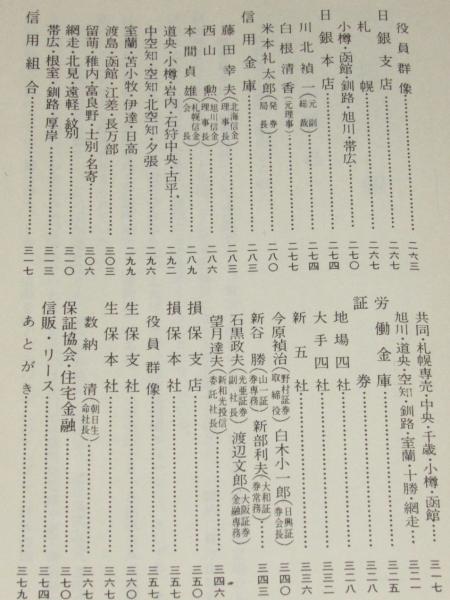 役員群像……二六三
日銀支店……二六七
札幌……二六七
小樽・函館・釧路・旭川・帯広……二七〇
日銀本店……二七四
川北禎一(元副総裁)……二七四
白根清香(元理事)……二七七
米本礼太郎(発券局長)……二八〇
信用金庫……二八三
藤田幸夫(北海信金理事長)……二八三
西山勲(旭川信金理事長)……二八六
本間貞雄(札幌信金会長)……二八九
道央・小樽・岩内・石狩中央・古平……二九二
中空知・空知・北空知・夕張……二九六
室蘭・苫小牧・伊達・日高……二九九
渡島・函館・江差・長万部……三〇三
留萌・稚内・富良野・士別・名寄……三〇六
網走・北見・遠軽・紋別……三一〇
帯広・根室・釧路・厚岸……三一三
信用組合……三一七
共同・札幌専売・中央・千歳・小樽・函館……三一七
旭川・道央・空知・釧路・室蘭・十勝・網走……三二一
労働金庫……三二五
証券……三二八
地場四社……三二八
大手四社……三三二
新五社……三三六
今原禎治(野村証券取締役) 白木小一郎(日興証券会長)……三四〇
新谷勝(山一証券専務) 新部利夫(大和証券常務)……三四三
石黒政夫(光亜証券副社長) 渡辺文郎(大阪証券金融専務)
望月達夫(新和光投信委託社長)……三四六
損保支店……三五〇
損保本社……三五四
役員群像……三五七
生保支社……三五七
生保本社……三六三
数納清(朝日生命社長)……三六七
保証協会・住宅金融……三七〇
信販・リース……三七四
あとがき……三七九